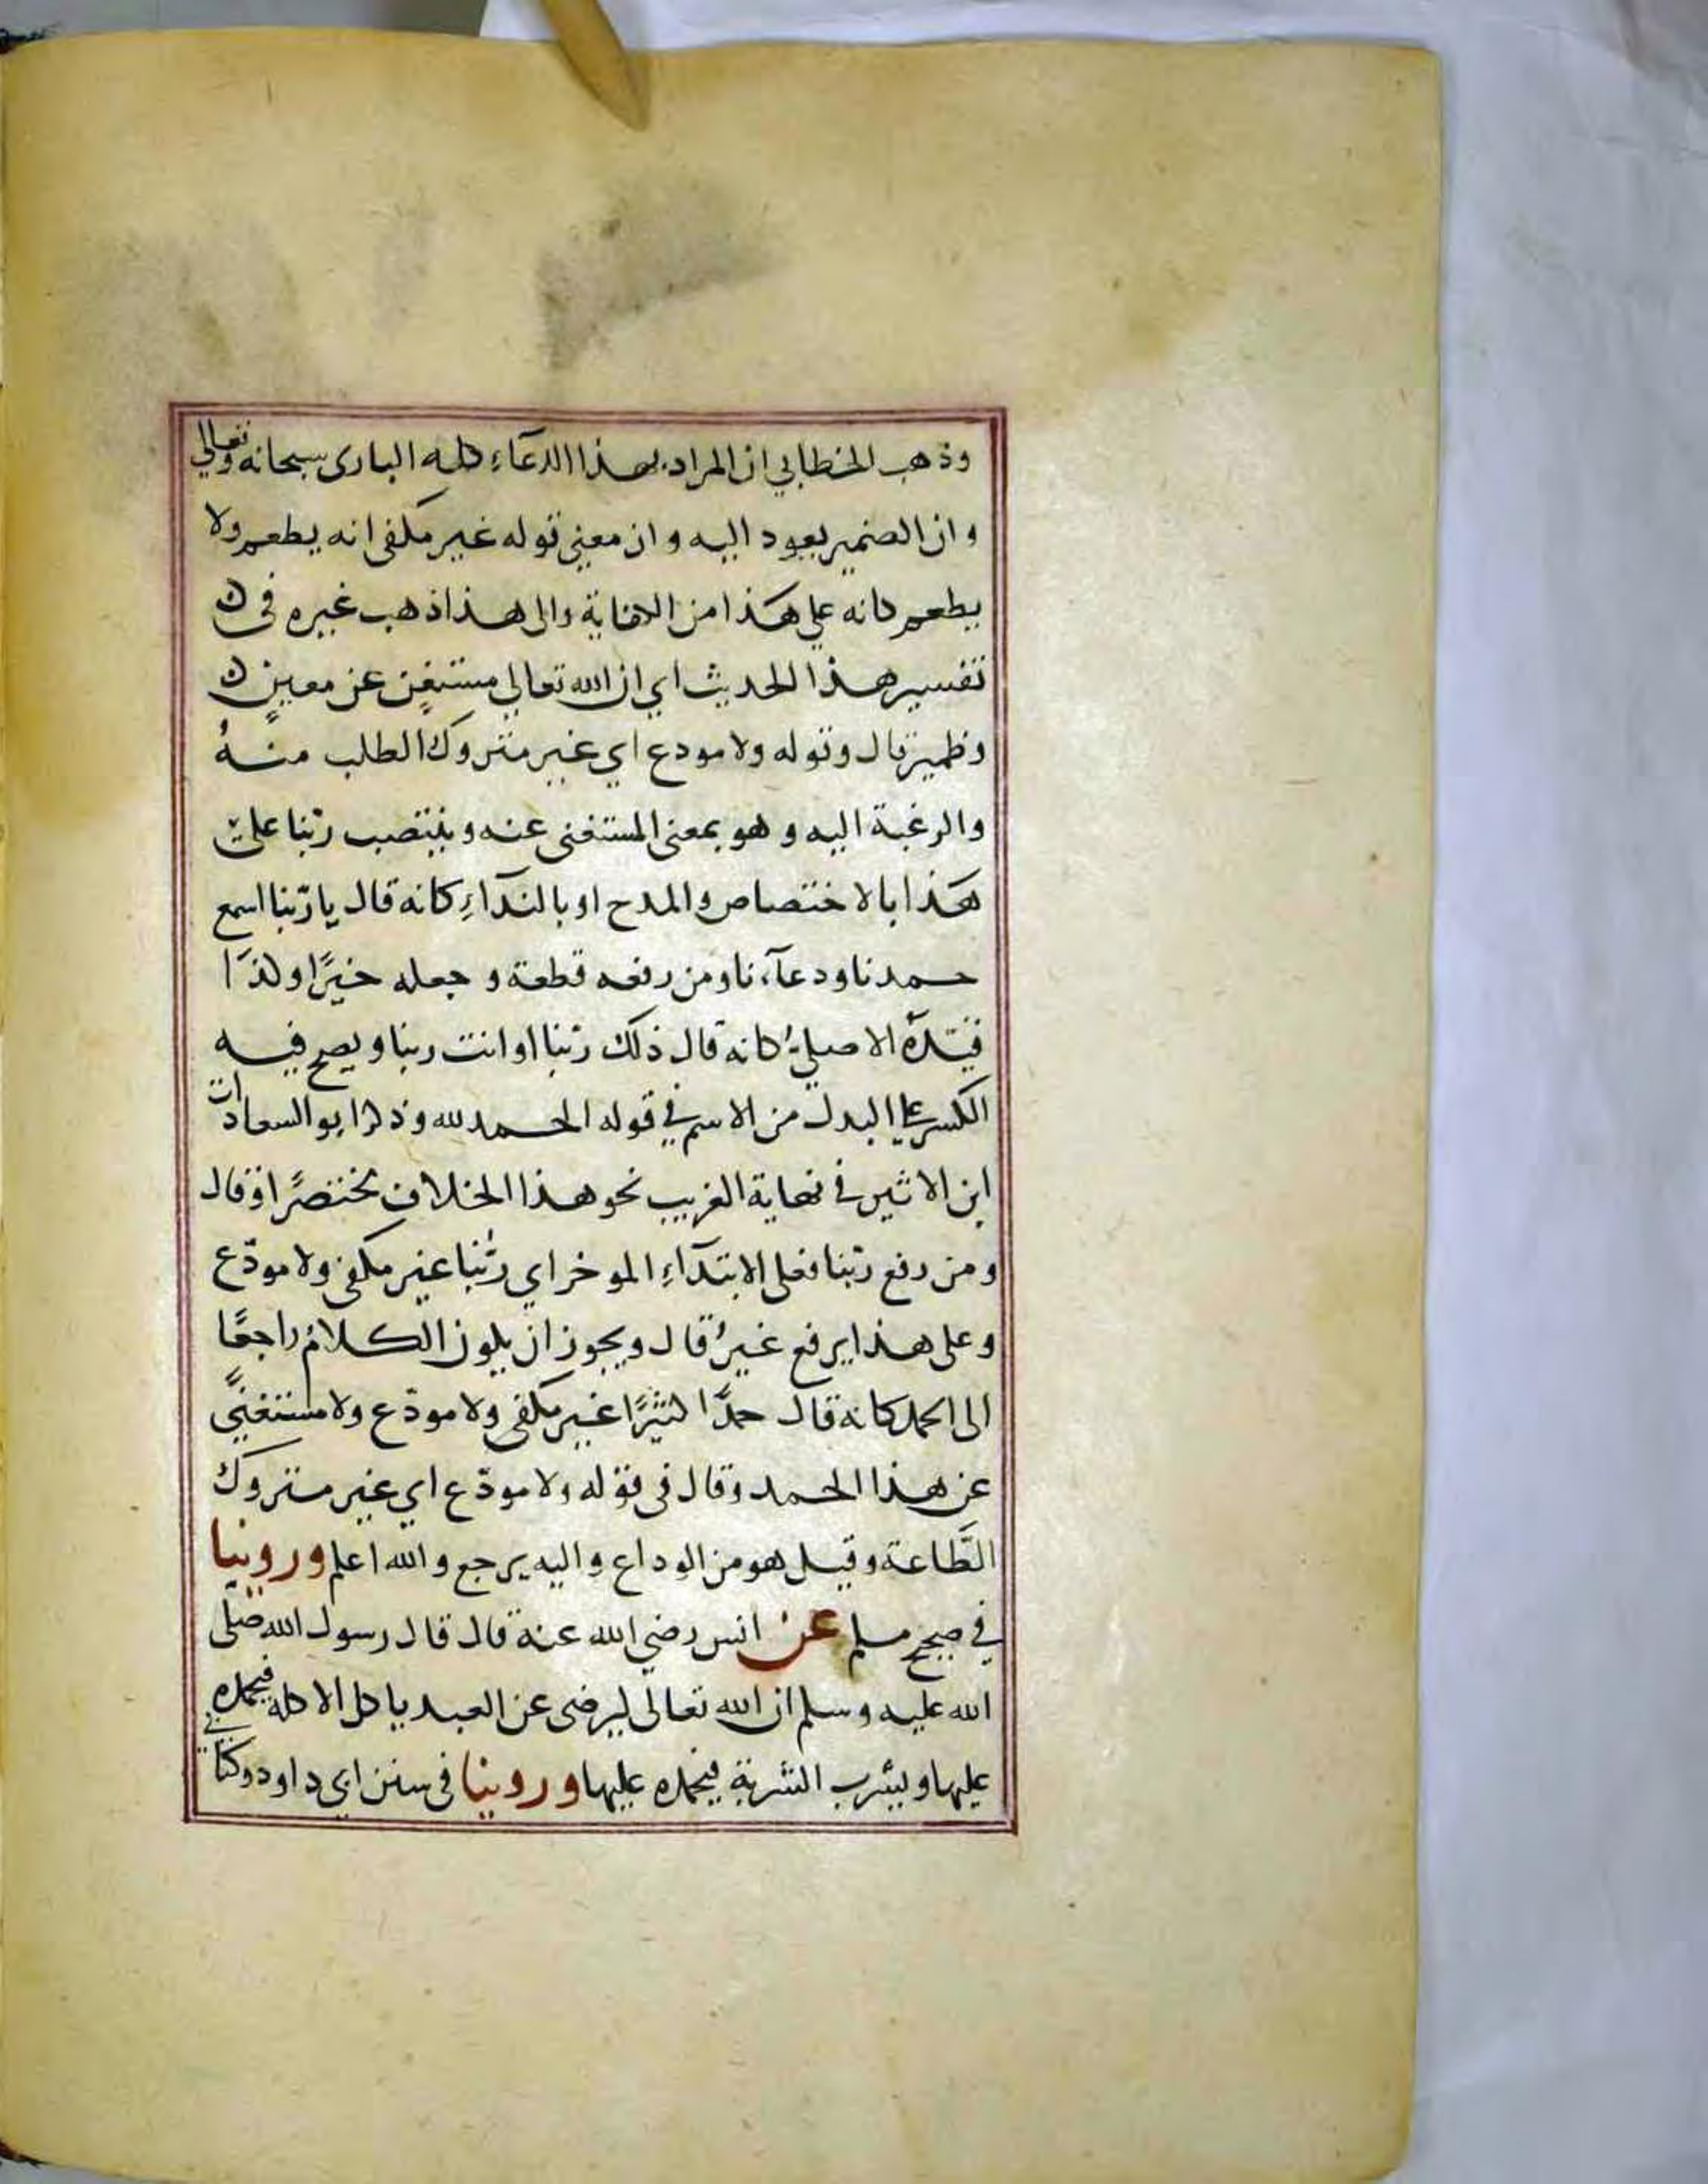 وذهب الخطابي ان المراد بهذا الدعاء كله البارى سبحانه وتعالي
وان الضمير يعود اليه وان معنى قوله غير مكفى انه يطعم ولا
يطعم كانه على هذا من الكفاية والى هذا ذهب غيره في
تفسير هذا الحديث اي ان الله تعالي مستغنٍ عن معينٍ
وظهيرٍ قال وقوله ولا مودع اي غير متروك الطلب منهُ
والرغبة اليه وهو بمعنى المستغنى عنه وينتصب ربّنا على
هذا بالاختصاص والمدح او بالندآءِ كانه قال يا ربّنا اسمع
حمدنا ودعآءنا ومن رفعه قطعة وجعله خبرًا وكذا
قيّدهُ الاصيليُ كانه قال ذلك ربّنا او انت ربنا ويصح فيه
الكسر على البدل من الاسم في قوله الحمد لله وذكر ابو السعادات
ابن الاثير في نهاية الغريب نحو هذا الخلاف مختصرًا وقال
ومن رفع ربّنا فعلى الابتدآءِ الموخر اي ربُّنا غير مكفى ولا مودّع
وعلى هذا يرفع غيرُ قال ويجوز ان يكون الكلامُ راجعًا
الى الحمد كانه قال حمدًا كثيرًا غير مكفى ولا مودّع ولا مستغنًى
عن هذا الحمد وقال في قوله ولا مودّع اي غير متروك
الطَّاعة وقيل هو من الوداع واليه يرجع والله اعلم وروينا
في صحيح مسلم عن انس رضي الله عنه قال قال رسول الله صلى
الله عليه وسلم ان الله تعالى ليرضى عن العبد ياكل الاكلة فيحمده
عليها ويشرب الشربة فيحمده عليها وروينا في سنن ابي داود وكتابي